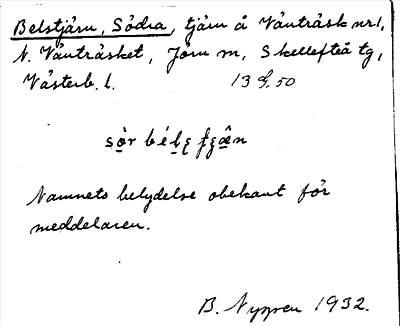 Belstjärn, Södra, tjärn å Vänträsk nr 1,
N. Vänträsket, Jörn sn, Skellefteå tg,
Västerb. l. 13 50
sör
Namnets betydelse obekant för
meddelaren.
B. Nygren 1932.